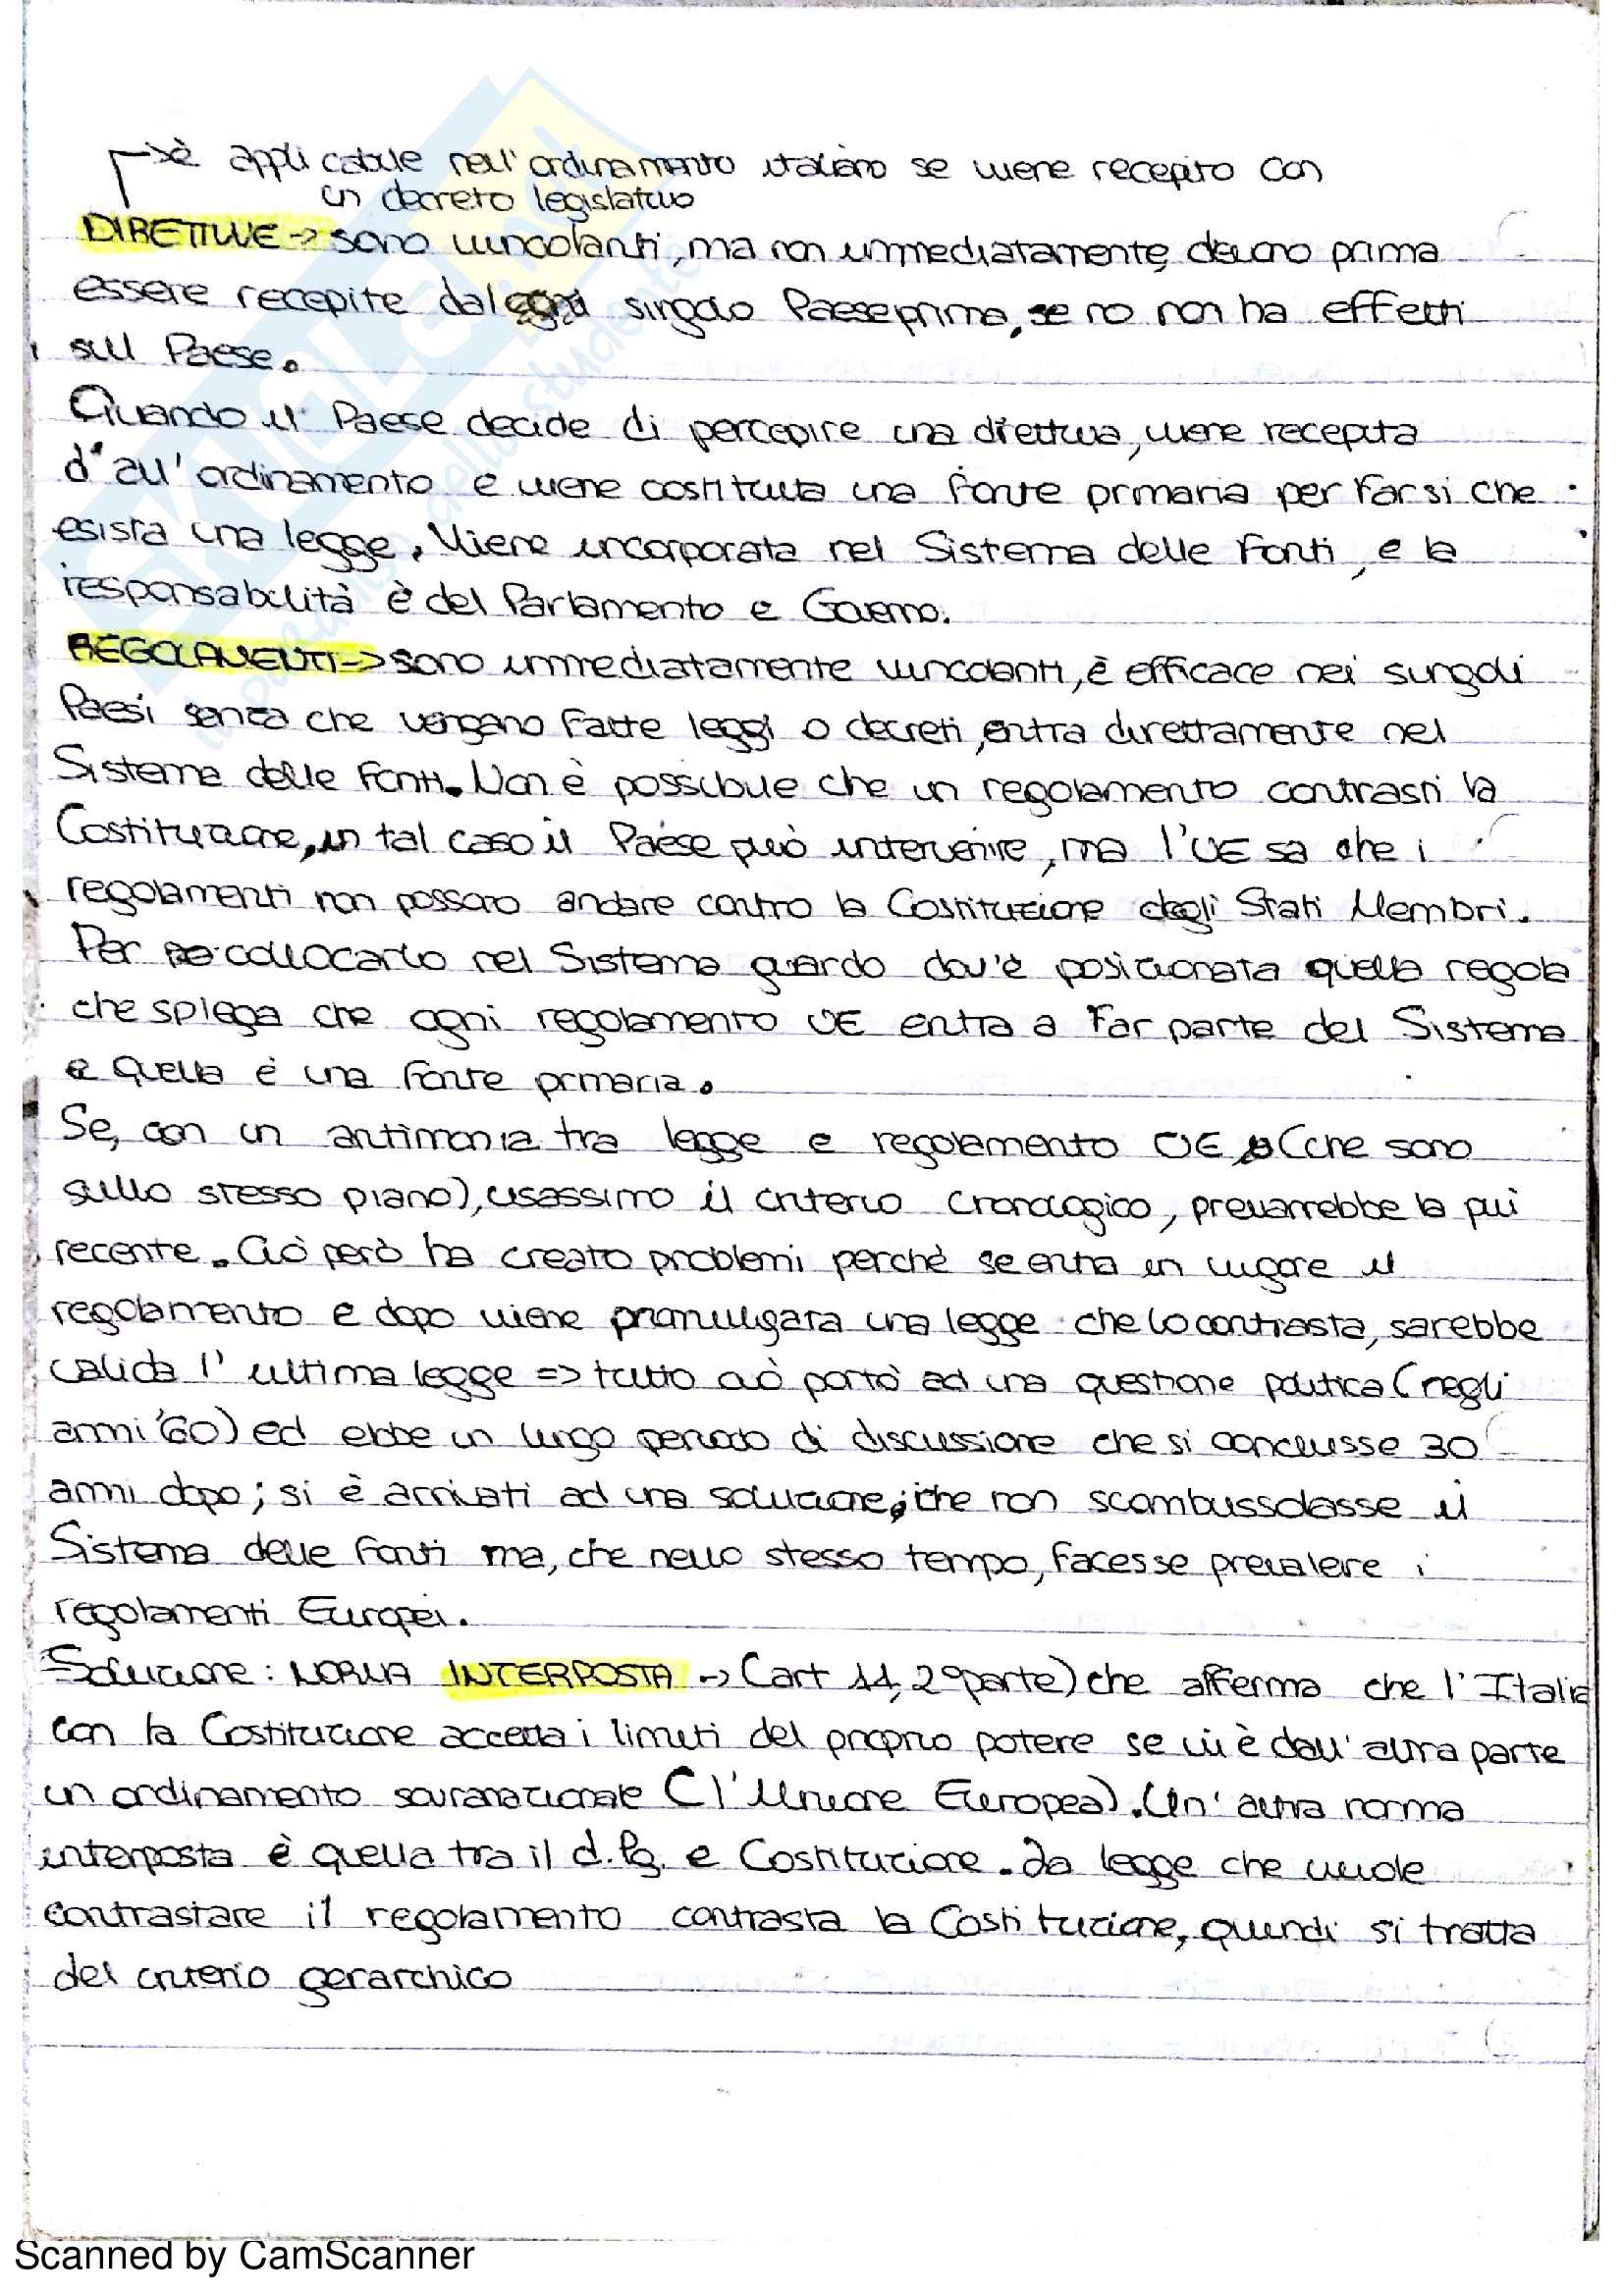 è applicabile nell'ordinamento italiano se viene recepito con
un decreto legislativo
DIRETTIVE -> sono vincolanti, ma non immediatamente, devono prima
essere recepite dal singolo Paese prima, se no non ha effetti
sul Paese.
Quando il Paese decide di percepire una direttiva, viene recepita
d'all'ordinamento e viene costituita una fonte primaria per far sì che
esista una legge. Viene incorporata nel Sistema delle Fonti, e la
responsabilità è del Parlamento e Governo.
REGOLAMENTI -> sono immediatamente vincolanti, è efficace nei singoli
Paesi senza che vengano fatte leggi o decreti, entra direttamente nel
Sistema delle Fonti. Non è possibile che un regolamento contrasti la
Costituzione, in tal caso il Paese può intervenire, ma l'UE sa che i
regolamenti non possono andare contro la Costituzione degli Stati Membri.
Per collocarlo nel Sistema guardo dov'è posizionata quella regola
che spiega che ogni regolamento UE entra a far parte del Sistema
e quella è una fonte primaria.
Se, con un antimonia tra legge e regolamento UE (che sono
sullo stesso piano), usassimo il criterio cronologico, prevarrebbe la più
recente. Ciò però ha creato problemi perché se entra in vigore il
regolamento e dopo viene promulgata una legge che lo contrasta, sarebbe
valida l'ultima legge => tutto ciò portò ad una questione politica (negli
anni '60) ed ebbe un lungo periodo di discussione che si concluse 30
anni dopo; si è arrivati ad una soluzione, che non scombussolasse il
Sistema delle Fonti ma, che nello stesso tempo, facesse prevalere i
regolamenti Europei.
Soluzione: NORMA INTERPOSTA -> (art 11, 2° parte) che afferma che l'Italia
con la Costituzione accetta i limiti del proprio potere se vi è dall'altra parte
un ordinamento sovranazionale (l'Unione Europea). Un'altra norma
interposta è quella tra il d.lg. e Costituzione. La legge che vuole
contrastare il regolamento contrasta la Costituzione, quindi si tratta
del criterio gerarchico
SKUOLA.net
il paradiso dello studente
Scanned by CamScanner